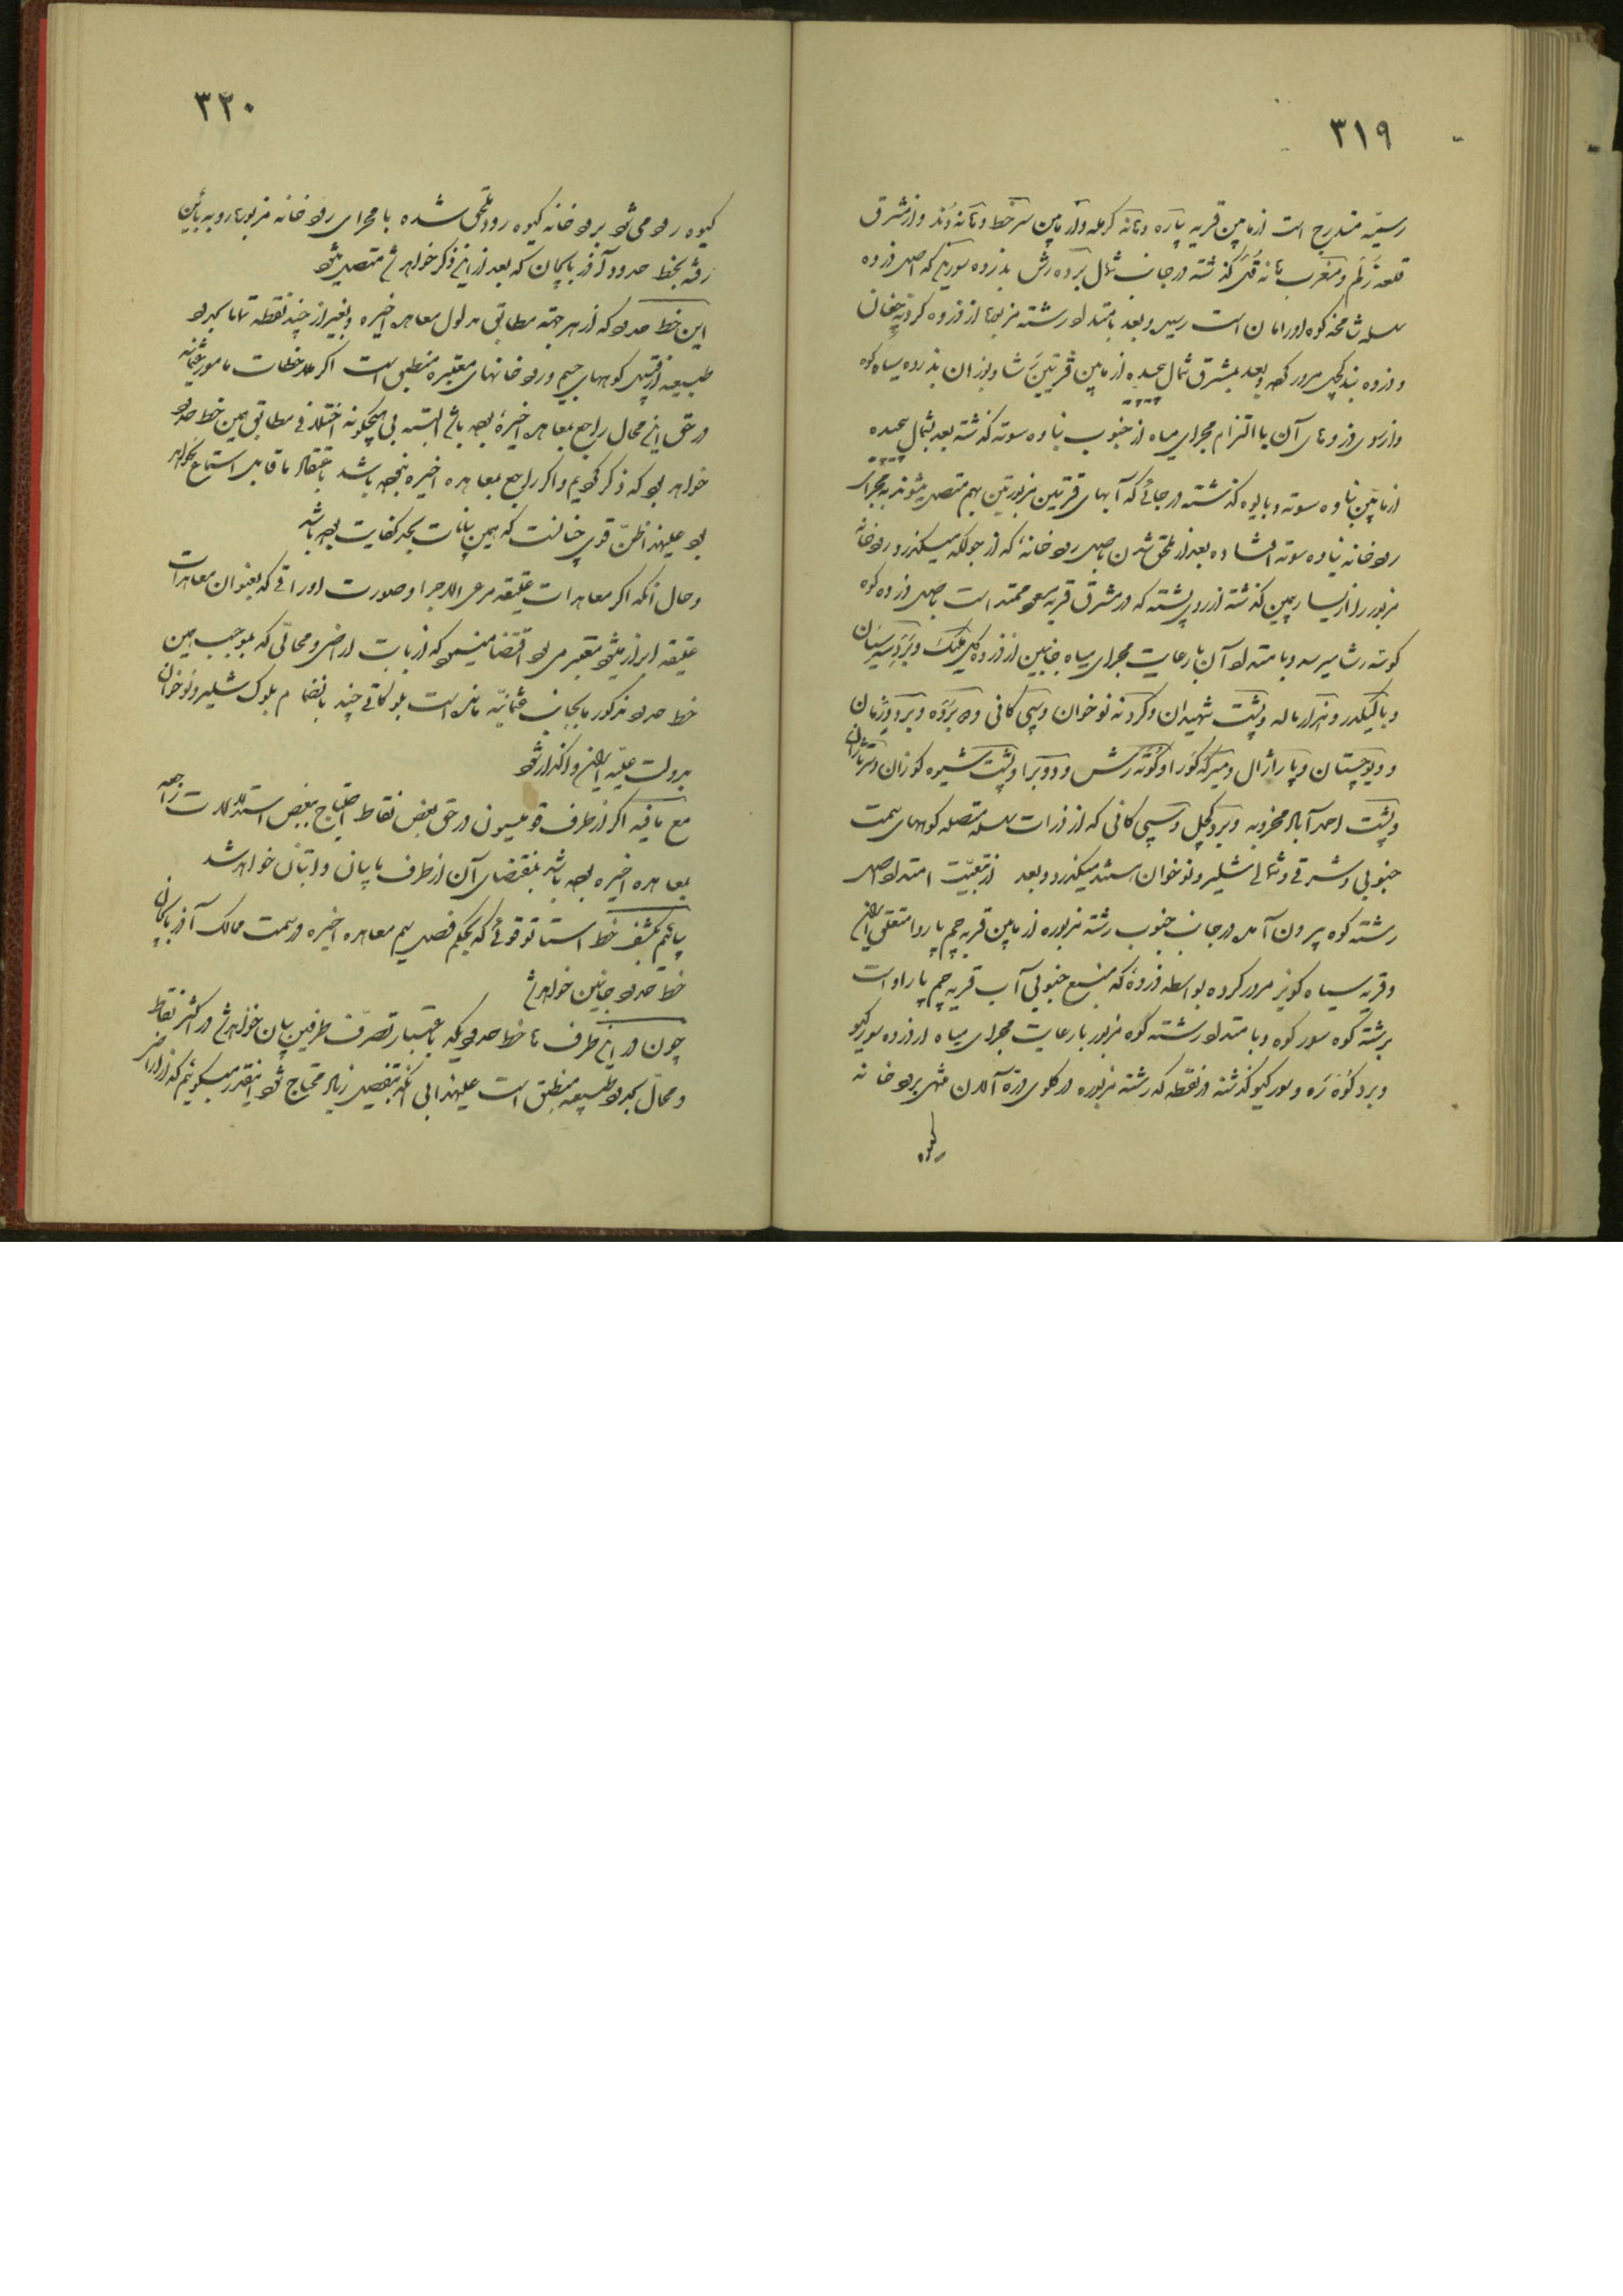 ۳۱۹
رسیّه مندرج است از مابین قریه پیاره و تانه کرمله و از مابین سرخط و تانه دُند و از مشرق
قلعه زَلَم و مغرب تانه قُلَن گذشته در جانب شمال برده رش بذروه سورین که اصل ذروه
سلسله شامخه کوه اورامان است رسیده بعد بامتداد رشته مزبوره از ذروه کردنه چغان
و ذروه بندکچل مرور کرده و بعد بمشرق شمال پیچیده از مابین قریتین شاوبوران بذروه سیاه کوه
و از روی ذروه‌های آن با التزام مجرای میاه از جنوب بناوه سوته گذشته بعد بشمال پیچیده
از مابین بناوه سوته و بایوه گذشته در جائی که آبهای قریتین مزبورتین بهم متصل میشوند به مجرای
رودخانه نیاوه سوته افتاده بعد از ملحق شدن باصل رودخانهٔ که از جولکه میگذرد رودخانه
مزبور را از یسار بیمین گذشته از روی پشته که در مشرق قریه ممتد است باصل ذروه کوه
کوسه رشا میرسد و بامتداد آن با رعایت مجرای میاه جانبین از ذروه کلی ملیک و بردسیریان
و باکیکدر و هزارماله و پشت شهیدان و کردنه نوخوان و سپی کانی و برده و برد وژمان
و دیوچستان و پاراژال و میرکه کورا و کونه رش و دوبرا و پشت شیوه کوزان و سرنازان
و پشت احمدآباد مخروبه و برد کچل و سپی کانی که از ذرات سلسله متصله کوههای سمت
جنوبی و شرقی و شمالی شلیر و نوخوان هستند میگذرد و بعد از تبعیّت امتداد اصل
رشته کوه بیرون آمده در جانب جنوب رشته مزبوره از مابین قریه چم پاروا متعلق ایران
و قریه سیاه کویز مرور کرده بواسطه ذروهٔ که منبع جنوبی آب قریه چم پاراو است
برشته کوه سورکوه و بامتداد رشته کوه مزبور با رعایت مجرای میاه از ذروه سورکیو
و برد کوزه رَه و سورکیو گذشته از نقطه که رشته مزبوره در کلوی درهٔ آلدن منتهی برودخانه
کیوه
۳۲۰
کیوه رود می‌شود برودخانه کیوه رود ملحق شده با مجرای رودخانه مزبوره رو به پائین
رفته بخط حدود آذربایجان که بعد از این ذکر خواهد شد متصل میشود
این خط حدود که از هر جهة مطابق مدلول معاهده اخیره و بغیر از چند نقطه تماما بحدود
طبیعیه از قبیل کوههای جسیم و رودخانهای معتبره منطبق است اگر ملاحظات مامور عثمانیه
در حق این محال راجع بمعاهده اخیره بوده باشد البته بی هیچگونه اختلاف مطابق همین خط حدود
خواهد بود که ذکر کردیم و اگر راجع بمعاهده اخیره نبوده باشد باعتقاد ما قابل استماع نخواهد
بود علیهذا ظنّ قوی چنانست که همین بیانات بحد کفایت بوده باشد
و حال آنکه اگر معاهدات عتیقه مرعی الاجرا و صورت اوراقی که بعنوان معاهدات
عتیقه ابراز میشود معتبر می‌بود اقتضا مینمود که از بابت اراضی و محالّی که بموجب همین
خط حدود مذکور بجانب عثمانیّه مانده است بلوکاتی چند بانضمام بلوک شلیر و نوخوان
بدولت علیّه ایران واگذار شود
مع مافیه اگر از طرف قومیسیون در حق بعض نقاط احتیاج ببعض استدلالات راجعه
بمعاهده اخیره بوده باشد بمقتضای آن از طرف ما بیان و اثبات خواهد شد
بیائیم بکشف خط استاتوقوئی که بحکم فصل سیم معاهده اخیره در سمت ممالک آذربایجان
خط حدود جانبین خواهد شد
چون در این طرف ها خط حدودیکه باعتبار تصرّف طرفین بیان خواهد شد در اکثر نقاط
و محالّ بحدود طبیعیه منطبق است علیهذا بی آنکه بتفصیل زیاد محتاج شود اینقدر میگوئیم که از اراضی